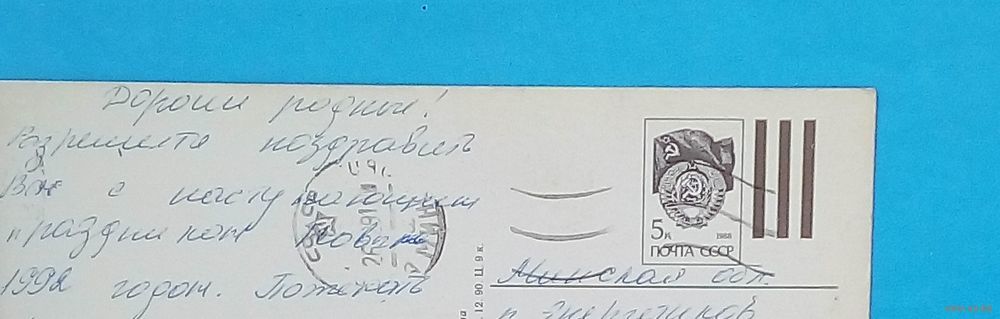 Дорогии родные!
Разрешите поздравить
Вас с наступающим
праздником Новым
1992 годом. Пожелать
5к
1988
ПОЧТА СССР
Минская обл.
п. Энергетиков
12. 90. Ц. 9 к.